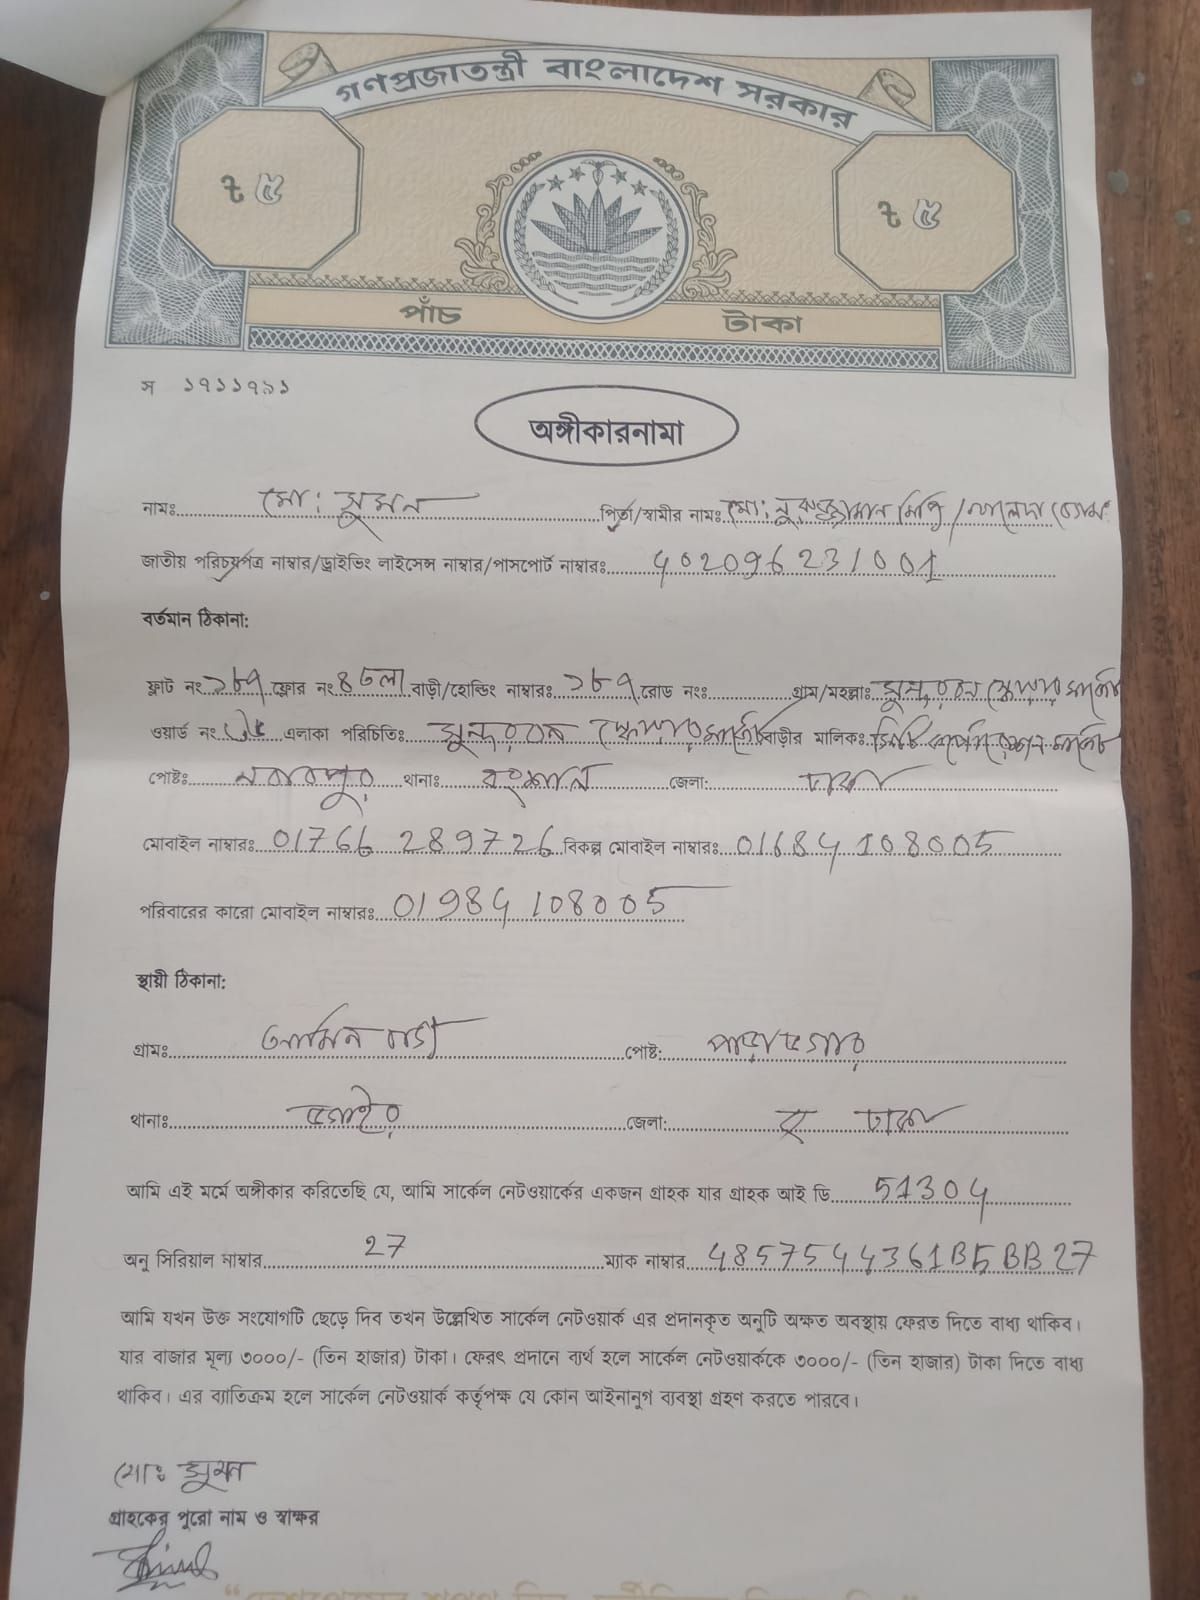 গণপ্রজাতন্ত্রী বাংলাদেশ সরকার
ট ৫ ট ৫
পাঁচ টাকা
স ১৭১১৭৯১
অঙ্গীকারনামা
নামঃ মো: সুমন পিতা/স্বামীর নামঃ মো: নুরুজ্জামান মিঞি / খালেদা বেগম
জাতীয় পরিচয়পত্র নাম্বার/ড্রাইভিং লাইসেন্স নাম্বার/পাসপোর্ট নাম্বারঃ 402096231001
বর্তমান ঠিকানা:
ফ্লাট নং ১৮৭ ফ্লোর নং ৪ তলা বাড়ী/হোল্ডিং নাম্বারঃ ১৮৭ রোড নংঃ গ্রাম/মহল্লাঃ সুন্দরবন স্কোয়ার মার্কেট
ওয়ার্ড নং এলাকা পরিচিতিঃ সুন্দরবন স্কোয়ার মার্কেট বাড়ীর মালিকঃ সিটি কর্পোরেশন মার্কেট
পোষ্টঃ নবাবপুর থানাঃ বংশাল জেলা: ঢাকা
মোবাইল নাম্বারঃ 01766 289726 বিকল্প মোবাইল নাম্বারঃ 01684 108005
পরিবারের কারো মোবাইল নাম্বারঃ 01984 108005
স্থায়ী ঠিকানা:
গ্রামঃ আমিন পোষ্ট: পাড়াডগার
থানাঃ জেলা: ঢাকা
আমি এই মর্মে অঙ্গীকার করিতেছি যে, আমি সার্কেল নেটওয়ার্কের একজন গ্রাহক যার গ্রাহক আই ডি 51304
অনু সিরিয়াল নাম্বার 27 ম্যাক নাম্বার 48575444361B5BB27
আমি যখন উক্ত সংযোগটি ছেড়ে দিব তখন উল্লেখিত সার্কেল নেটওয়ার্ক এর প্রদানকৃত অনুটি অক্ষত অবস্থায় ফেরত দিতে বাধ্য থাকিব।
যার বাজার মূল্য ৩০০০/- (তিন হাজার) টাকা। ফেরৎ প্রদানে ব্যর্থ হলে সার্কেল নেটওয়ার্ককে ৩০০০/- (তিন হাজার) টাকা দিতে বাধ্য
থাকিব। এর ব্যাতিক্রম হলে সার্কেল নেটওয়ার্ক কর্তৃপক্ষ যে কোন আইনানুগ ব্যবস্থা গ্রহণ করতে পারবে।
মোঃ সুমন
গ্রাহকের পুরো নাম ও স্বাক্ষর